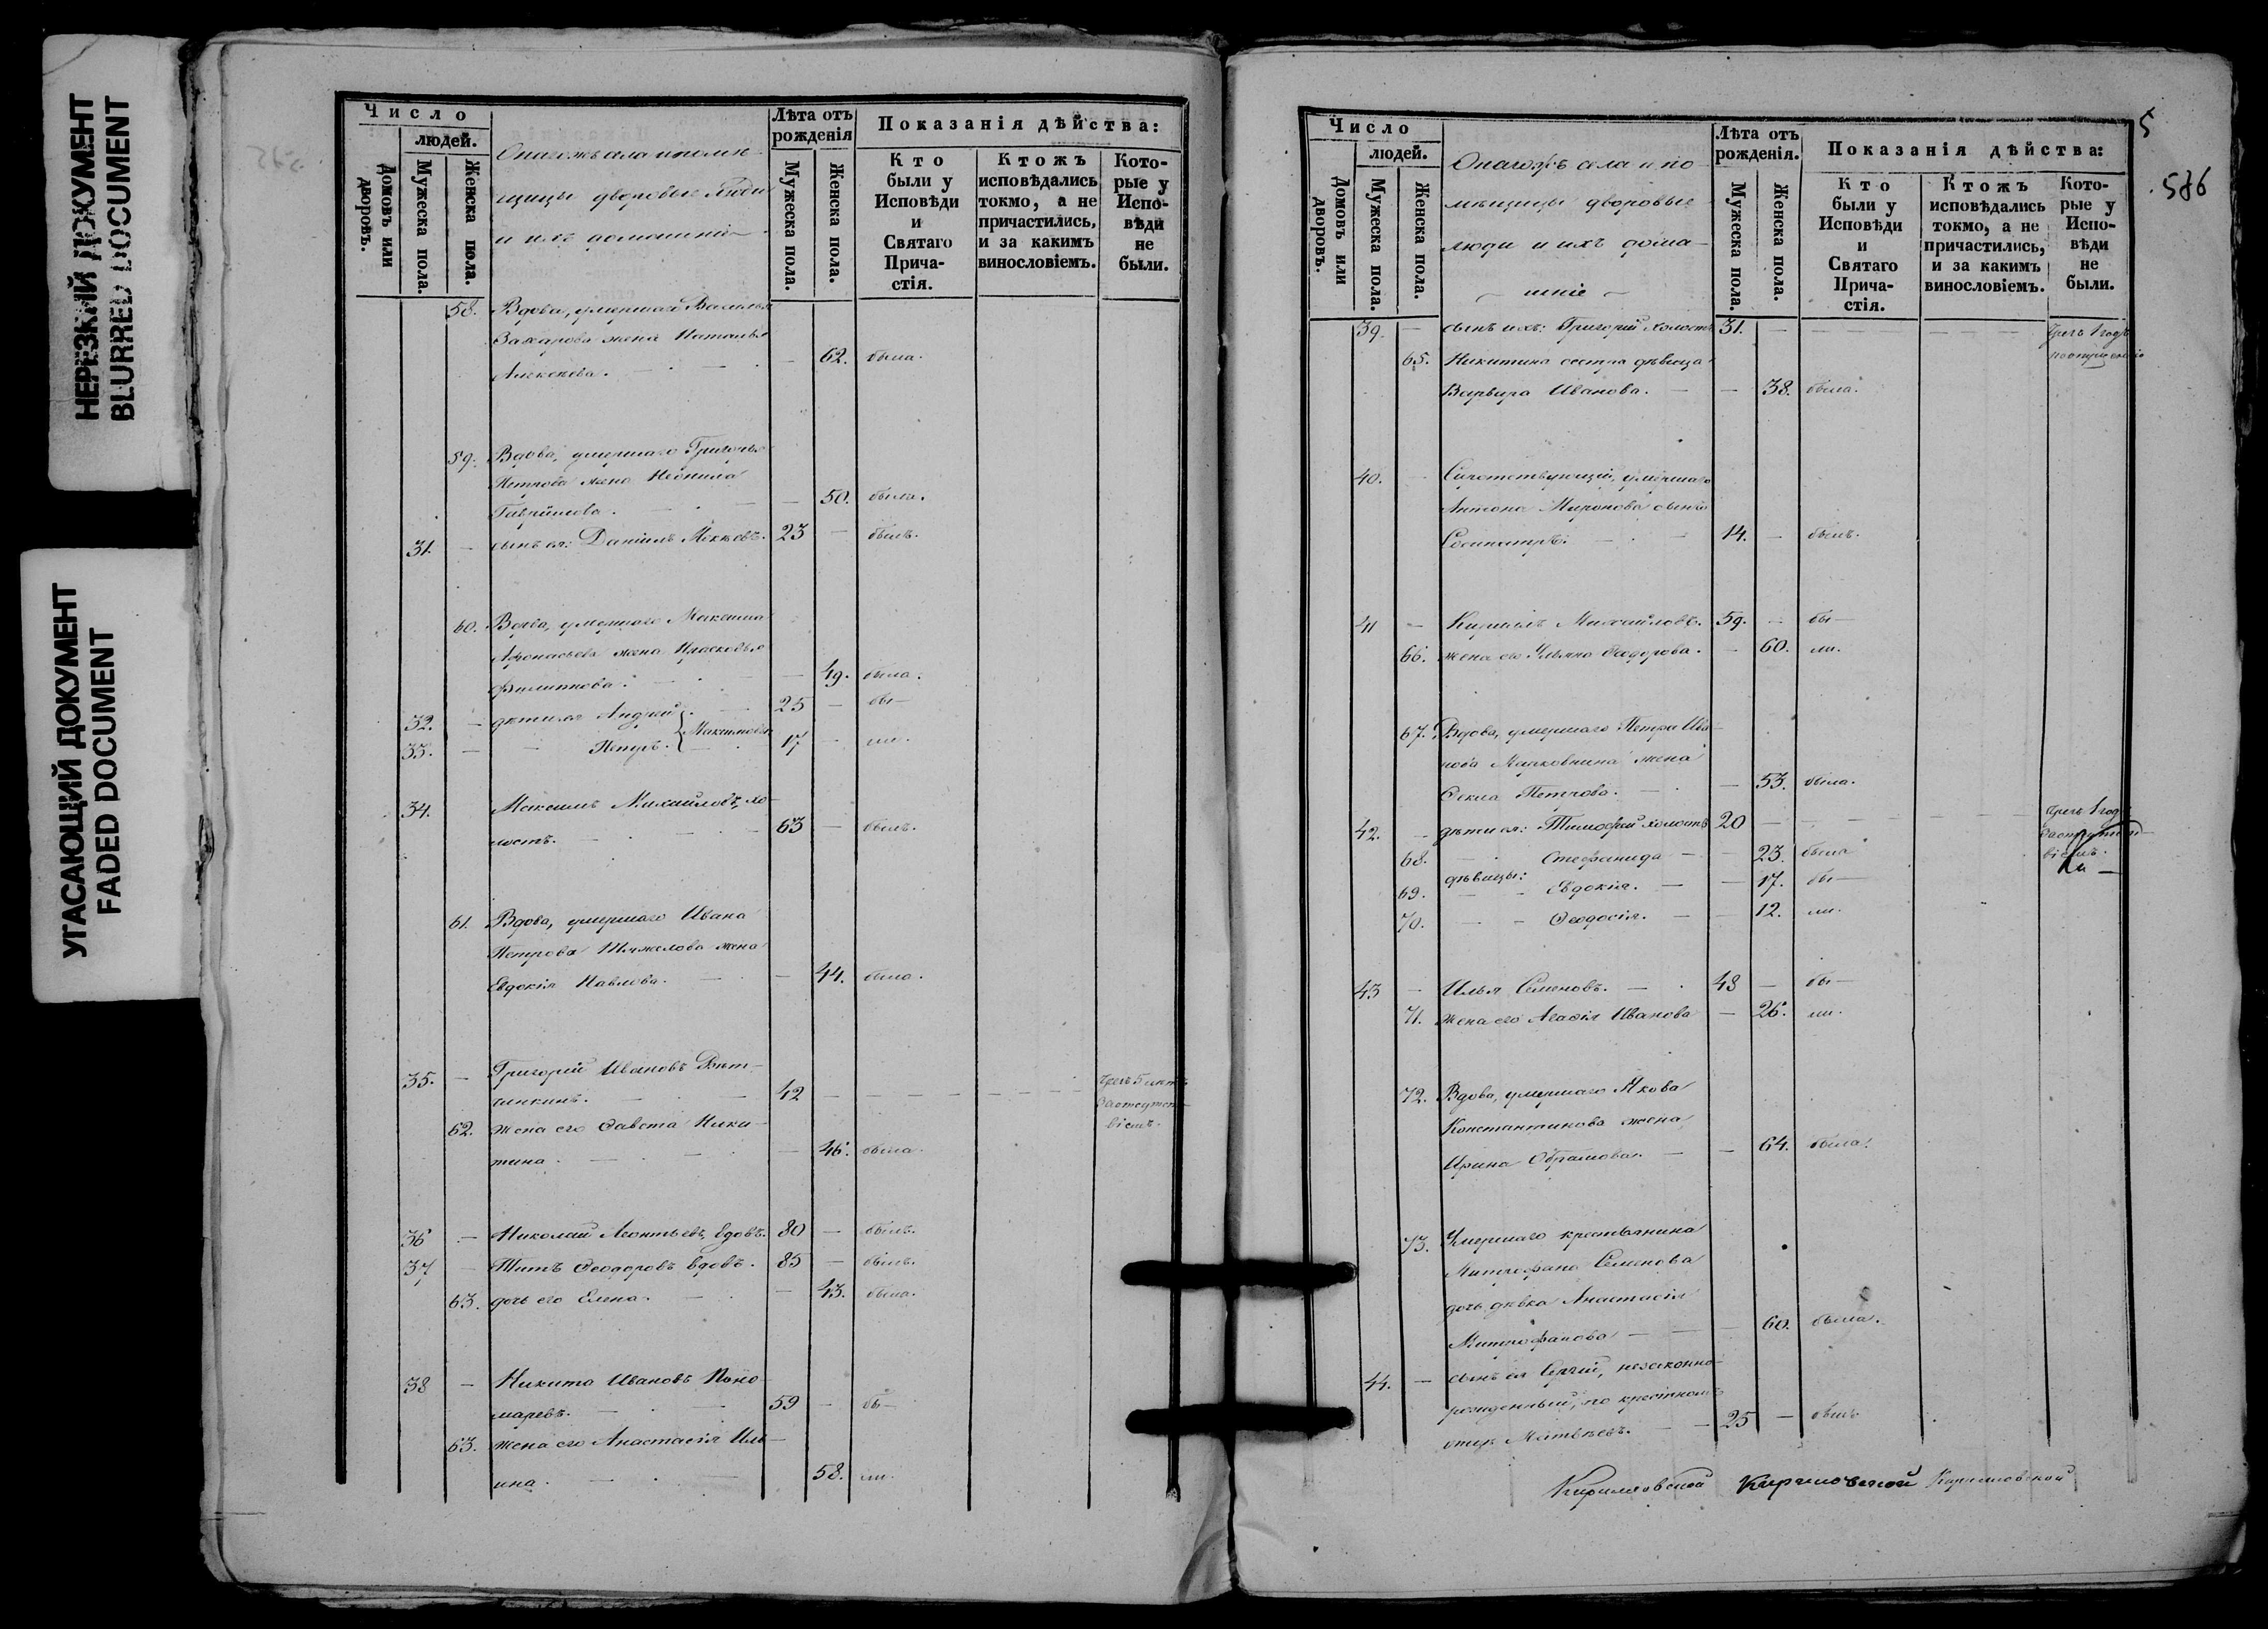 НЕРЕЗКИЙ ДОКУМЕНТ
BLURRED DOCUMENT
УГАСАЮЩИЙ ДОКУМЕНТ
FADED DOCUMENT
Число
людей.
Домовъ или дворовъ.
Мужеска пола.
Женска пола.
щицы дворовые люди
и ихъ домашніе
Лѣта отъ рожденія
Мужеска пола.
Женска пола.
Показанія дѣйства:
Кто были у Исповѣди и Святаго Причастія.
Ктожъ исповѣдались токмо, а не причастились, и за какимъ винословіемъ.
Которые у Исповѣди не были.
58. Вдова, умершаго Василья
Захарова жена Наталья
Алексѣева. — 62. была.
59. Вдова, умершаго Григорья
Петрова жена Неонила
Гаврилова. — 50. была.
31. — сынъ ея: Даніилъ 23 — былъ.
60. Вдова, умершаго Максима
Афонасьева жена Прасковья
Филиппова. — 49. была.
32. — дѣти ея Андрей 25 — бы—
33. — Петръ. Максимовы 17 — ли.
34. Максимъ Михайловъ, хо-
лостъ. — 63 — былъ.
61. Вдова, умершаго Ивана
Петрова жена
Евдокія Павлова. — 44. была.
35. — Григорій Ивановъ
42 — чрезъ 5 лѣтъ
62. жена его Ники-
тина. — 46. была.
36 — Николай Леонтьевъ, вдовъ. 80 — былъ.
37 — Титъ Ѳеодоровъ вдовъ. 85 — былъ.
63. дочь его Елена. — 43. была.
38 — Никита Ивановъ Поно-
маревъ. — 59 — бы—
63. жена его Анастасія Иль-
ина. — 58. ли.
5
586
Число
людей.
Домовъ или дворовъ.
Мужеска пола.
Женска пола.
Онагожъ села и по-
мѣщицы дворовые
люди и ихъ дома-
шніе
Лѣта отъ рожденія.
Мужеска пола.
Женска пола.
Показанія дѣйства:
Кто были у Исповѣди и Святаго Причастія.
Ктожъ исповѣдались токмо, а не причастились, и за какимъ винословіемъ.
Которые у Исповѣди не были.
39. — сынъ ихъ: Григорій холостъ 31. — чрезъ 1 годъ
65. Никитина сестра дѣвица
Варвара Иванова. — 38. была.
40. умершаго
Антона Миронова сынъ
14. — былъ.
41 — Кириллъ Михайловъ. 59. — бы—
66. жена его Ульяна Ѳеодорова. — 60. ли.
67. Вдова, умершаго Петра Ива-
нова жена
Ѳекла Петрова. — 53. была.
42. — дѣти ея: Тимофей холостъ 20 — чрезъ 1 годъ
68. Стефанида — 23. была
дѣвицы:
69. Евдокія. — 17. бы—
70. Ѳеодосія. — 12. ли.
43 — Илья Семеновъ. — 48 — бы—
71. жена его Агафія Иванова — 26. ли.
72. Вдова, умершаго Якова
Константинова жена
Ирина Абрамова. — 64. была.
73. Умершаго крестьянина
Митрофана Семенова
дочь дѣвка Анастасія
Митрофанова — 60. была.
44. — сынъ ея Сергій, незаконно-
рожденный, по крестномъ
отцѣ Матвѣевъ. — 25 — былъ
Кирилловской Кирилловской Кирилловской